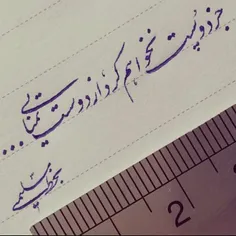 جز دوست نخواهم کرد از دوست تمنایی...
بخط سلیمی
1
2